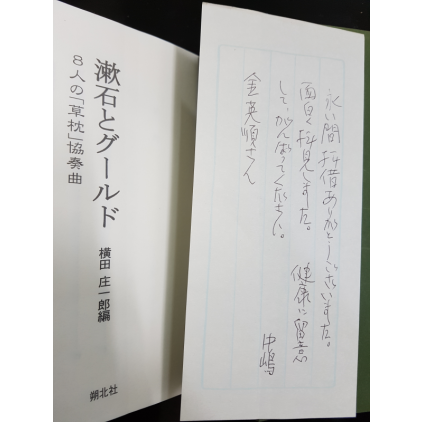 永い間 拝借ありがとうございました。
面白く拝見しました。 健康に留意
して、がんばってください。
中嶋
金英順さん
漱石とグールド
8人の「草枕」協奏曲
横田庄一郎編
朔北社